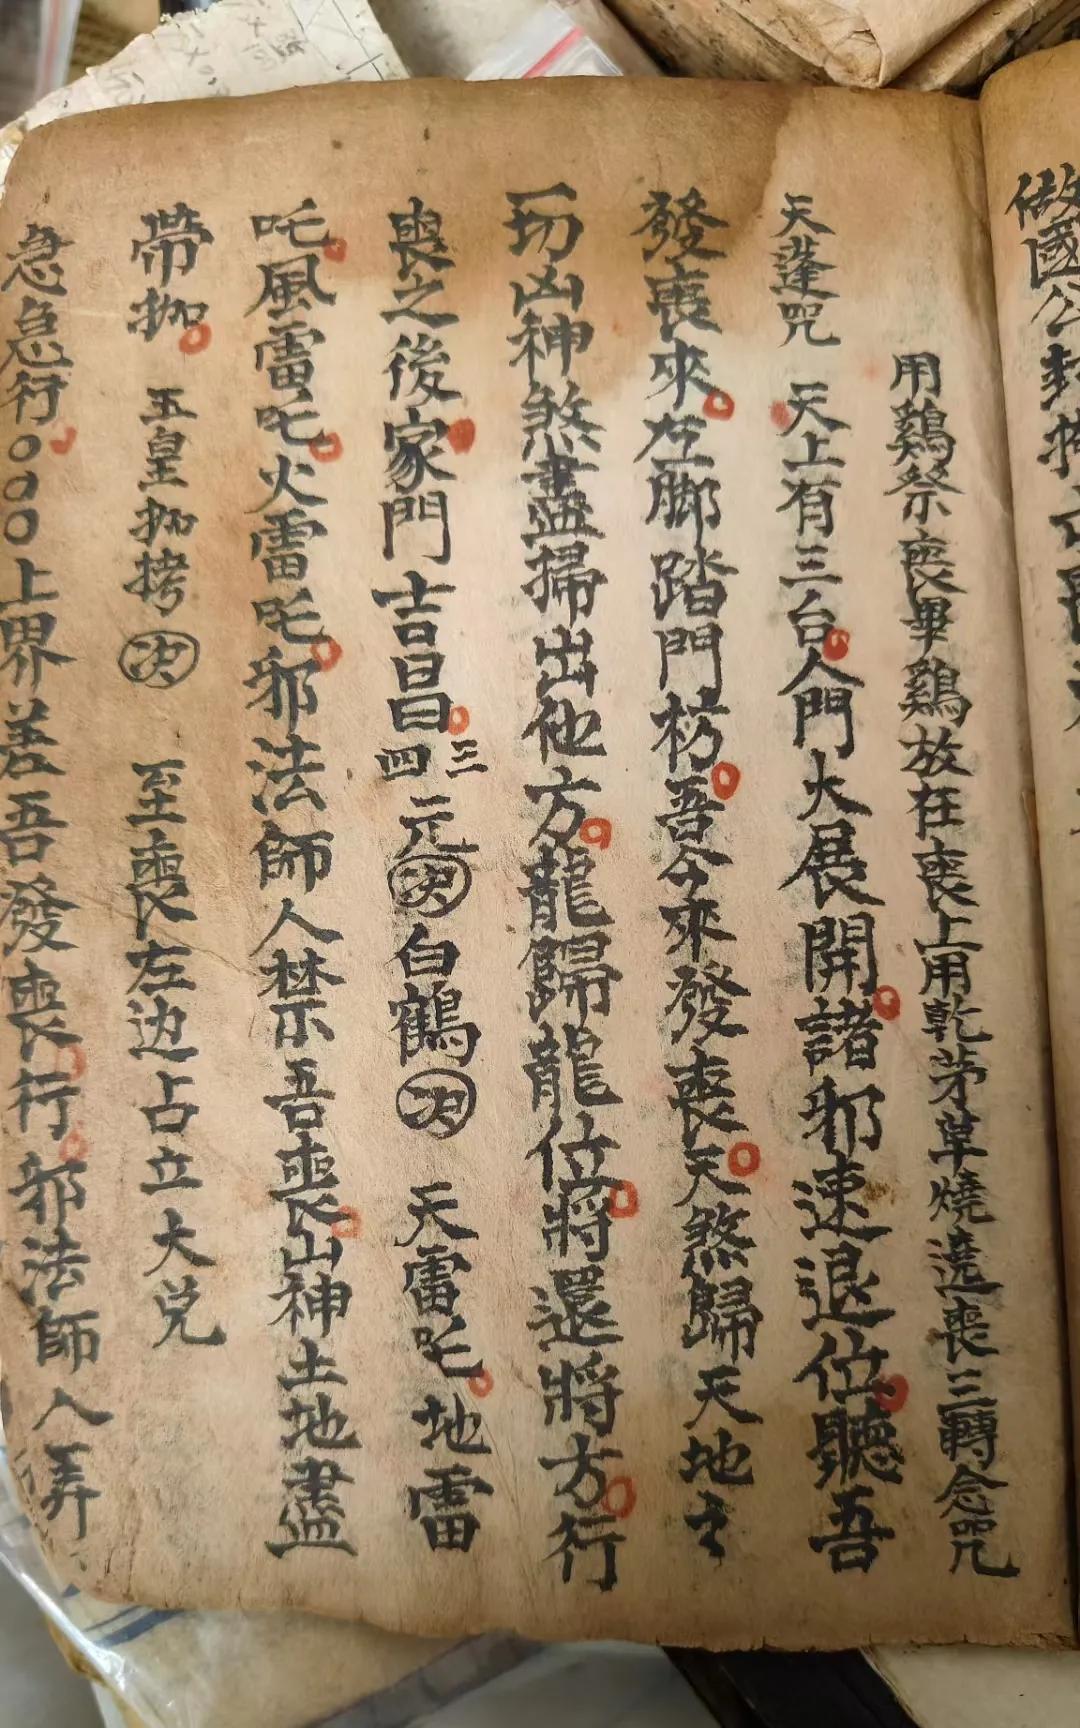 做國公封
用鷄祭喪畢鷄放在喪上用乾茅草燒遶喪三轉念咒
天蓬咒 天上有三台人門大展開諸邪速退位聽吾
發喪來左脚踏門枋吾今來發喪天煞歸天地之
一切凶神煞盡掃出他方龍歸龍位將還將方行
喪之後家門吉昌三四元決白鶴決 天雷吒地雷
吒風雷吒火雷吒邪法師人禁吾喪山神土地盡
帶枷 五皇枷拷決 至喪左边占立大兑
急急行〇〇〇上界差吾發喪行邪法師人弄